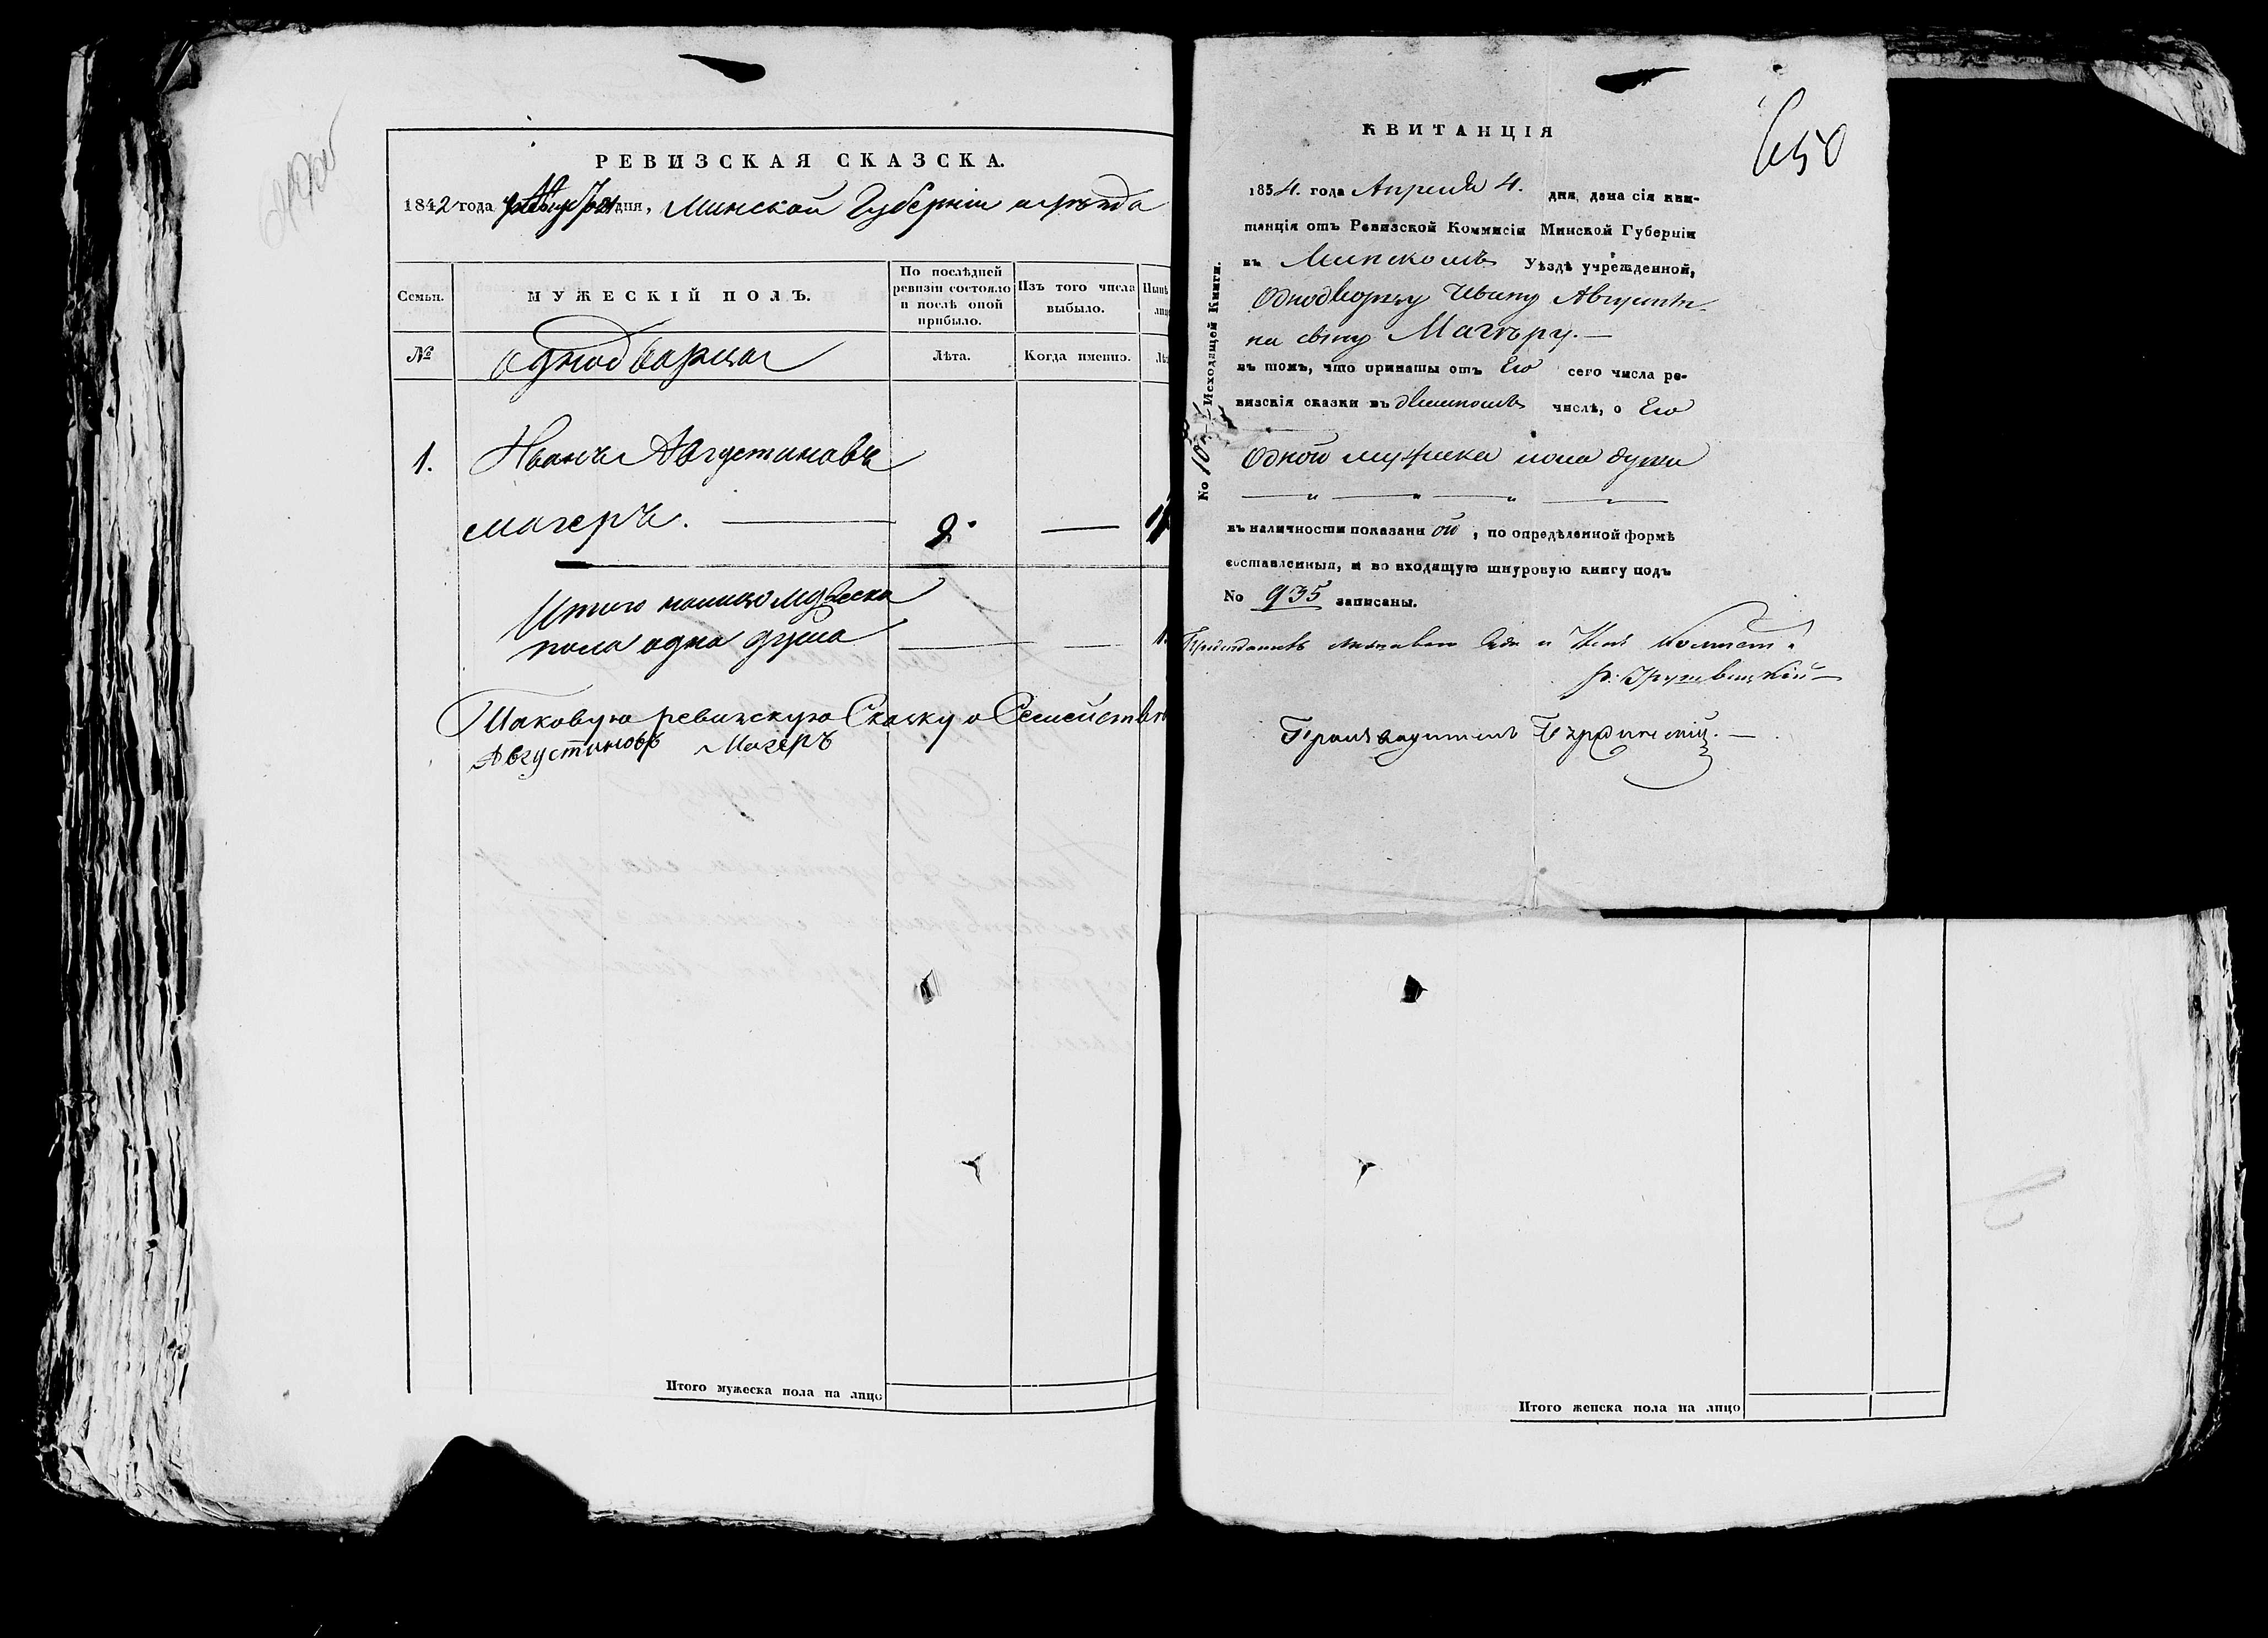 РЕВИЗСКАЯ СКАЗСКА.
1842 года дня, Минской Губерніи и уѣзда
Семьи.
МУЖЕСКІЙ ПОЛЪ.
По послѣдней ревизіи состояло и послѣ оной прибыло.
Изъ того числа выбыло.
№
однодворца
Лѣта.
Когда именно.
1.
Иванъ Августиновъ
Магеръ.
2.
Итого налицо мужеска
пола одна душа
1.
Таковую ревизскую Сказку о Семействѣ
Августиновъ Магеръ
Итого мужеска пола на лицо
650
КВИТАНЦІЯ
1854. года Апреля 4. дня, дана сія кви-
танція отъ Ревизской Коммисіи Минской Губерніи
въ Минскомъ Уѣздѣ учрежденной,
Однодворцу Ивану Августи-
на сыну Магеру.—
въ томъ, что приняты отъ Его сего числа ре-
визскія сказки въ числѣ, о Его
Одной мужеска пола души
въ наличности показанной, по опредѣленной формѣ
составленныя, и во входящую шнуровую книгу подъ
No 935 записаны.
No Исходящей Книги.
Производитель
Итого женска пола на лицо